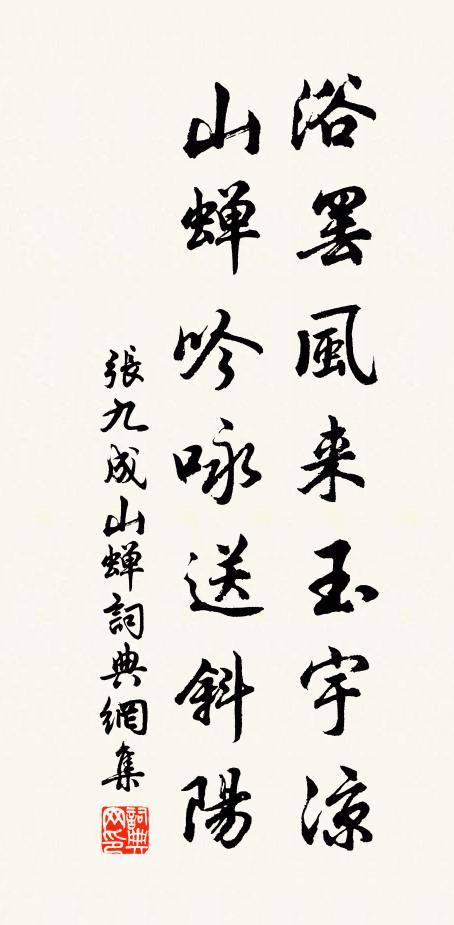 浴罢風来玉宇涼
山蝉吟咏送斜陽
張九成山蝉詞典網集
詞典网印